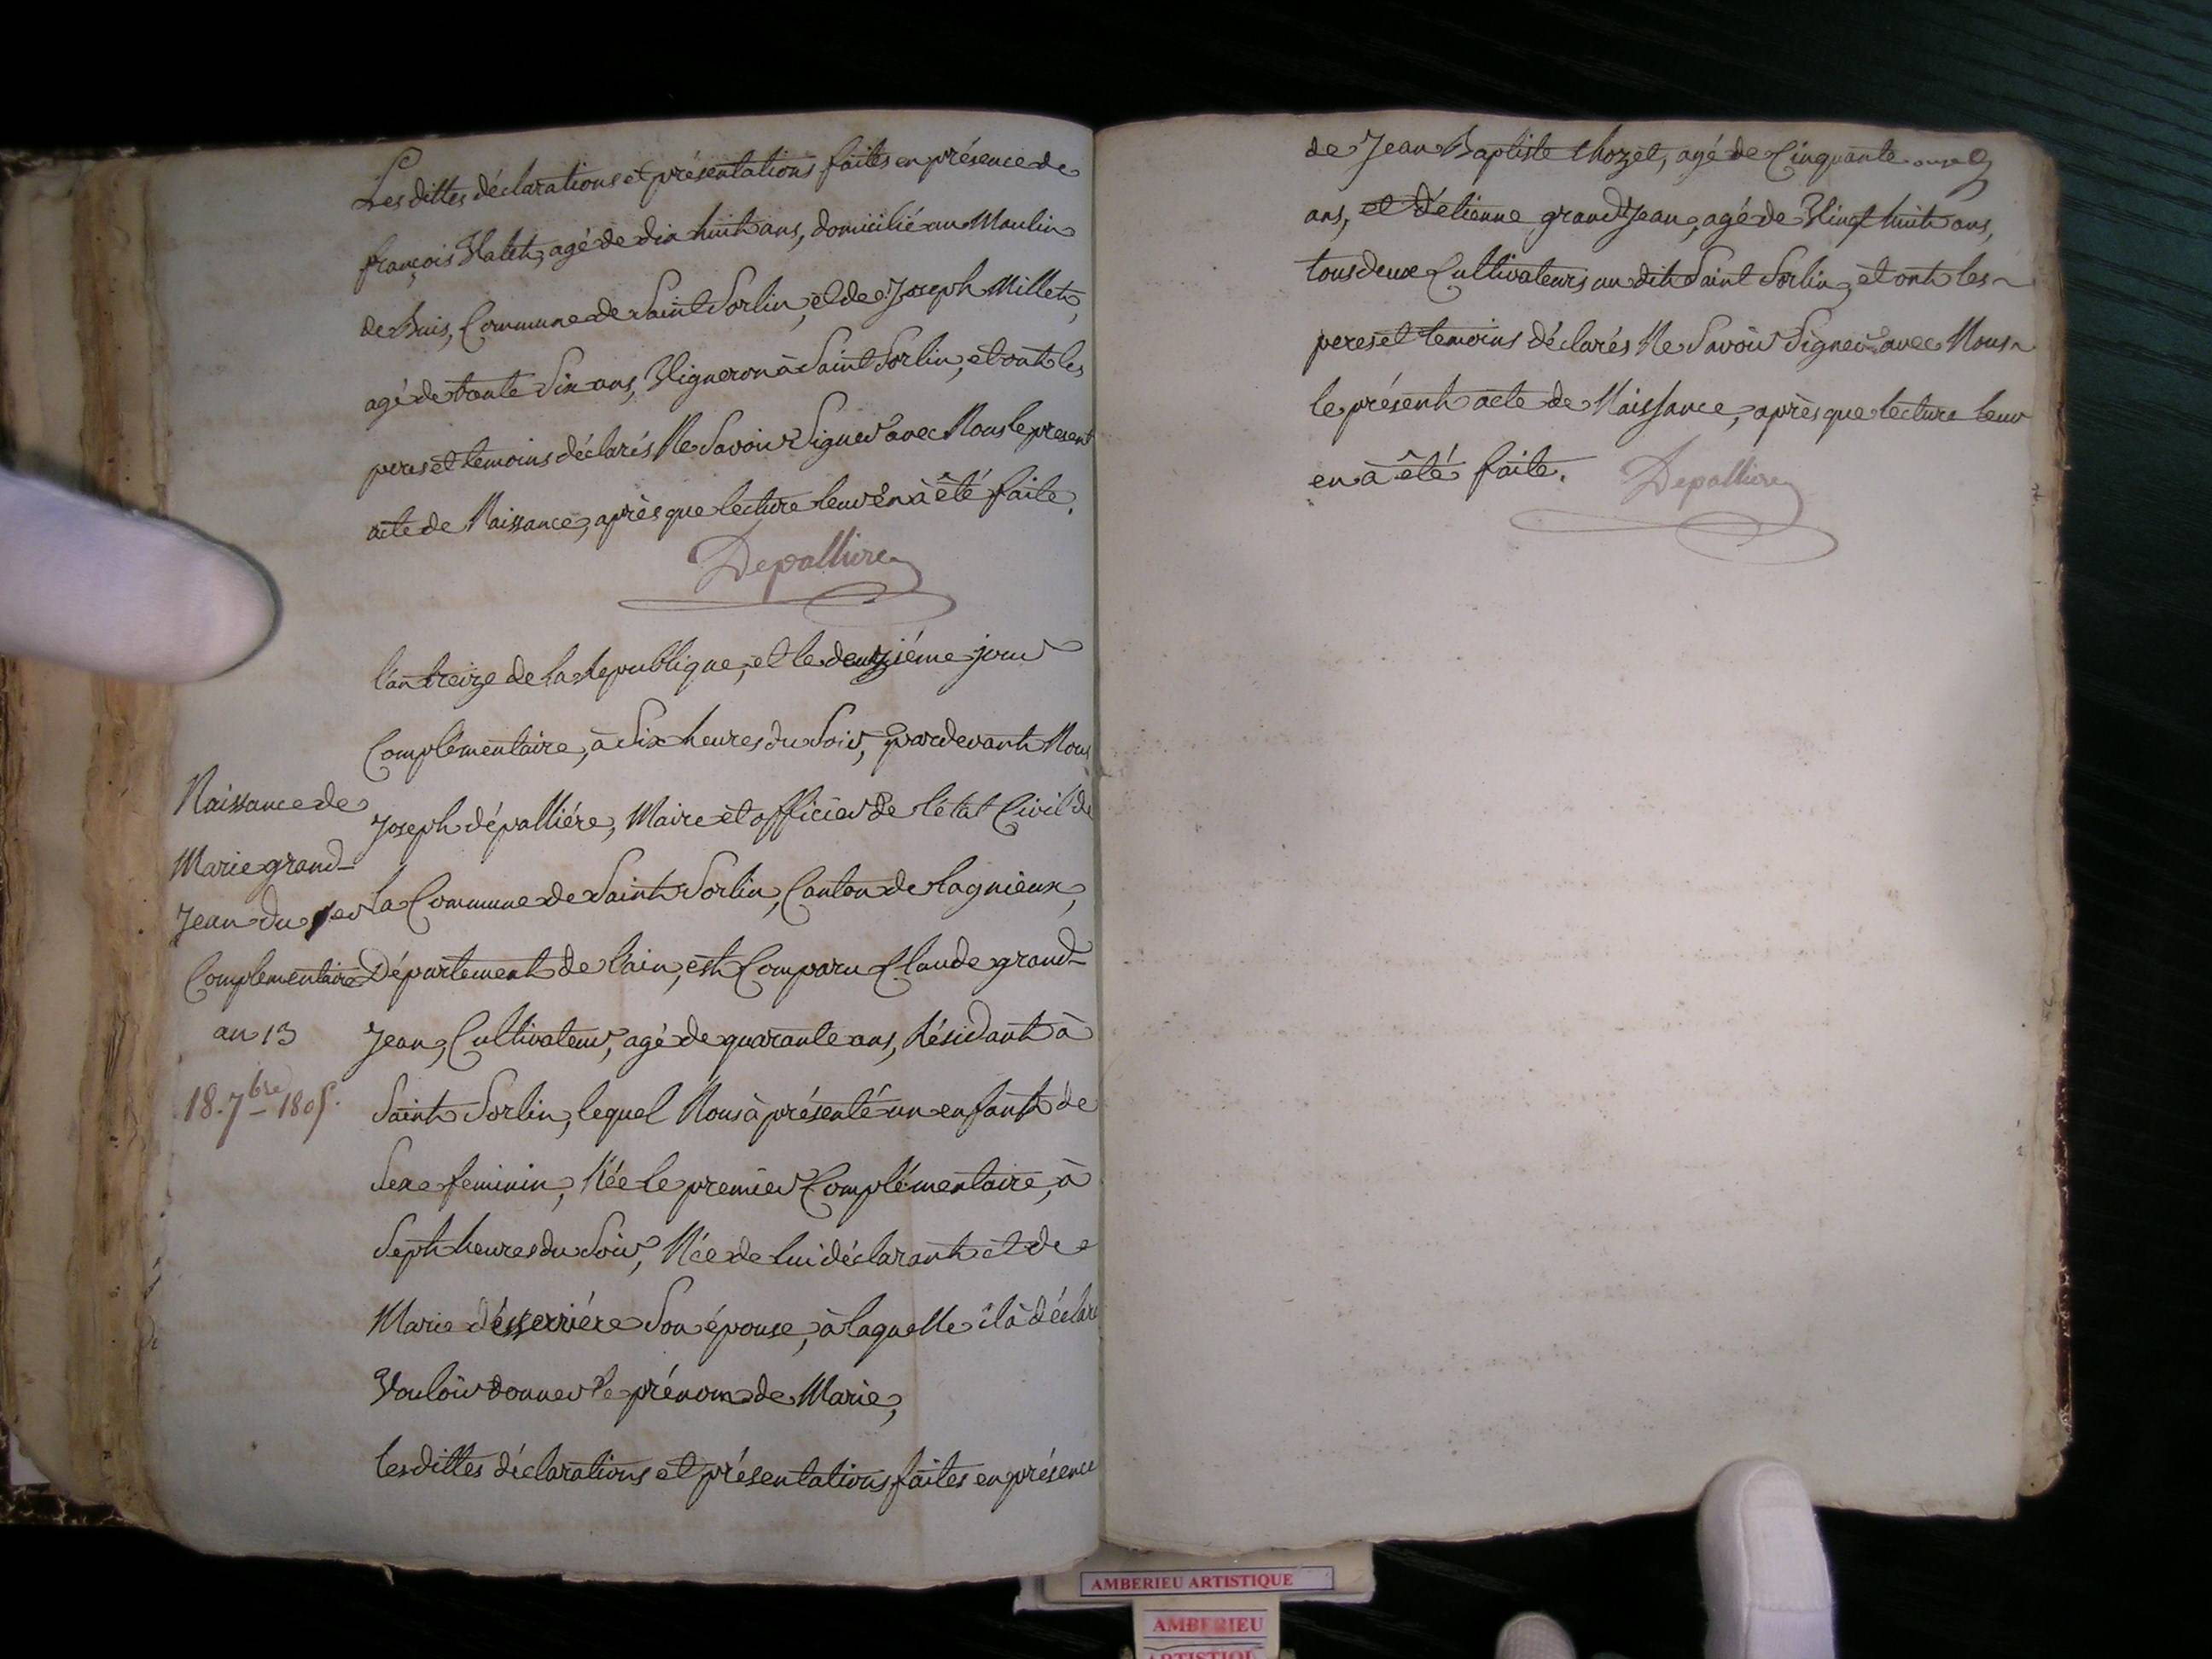 Les dittes déclarations et présentations faites en présence de
françois Valet, agé de dix huit ans, domicilié au Moulin
de Buis, Commune de Saint Sorlin, et de Joseph Millet,
agé de trente Six ans, Vigneron à Saint Sorlin, et ont les
peres et temoins déclarés Ne Savoir Signer avec Nous le present
acte de Naissance, après que lecture leur en à été faite.
Depalliere
l'an treize de la Republique, et le deuxiéme jour
Complémentaire, à Six heures du Soir, pardevant Nous
Joseph dépalliére, Maire et officier de l'état Civil de
la Commune de Saint Sorlin, Canton de lagnieux,
Département de l'ain, est Comparu Claude grand-
Jean, Cultivateur, agé de quarante ans, Résidant à
Saint Sorlin, lequel Nous à présenté un enfant de
Sexe feminin, Née le premier Complémentaire, à
Sept heures du Soir, Née de lui déclarant et de
Marie désserriére Son épouse, à laquelle il à déclaré
Vouloir donner le prénom de Marie,
les dittes déclarations et présentations faites en présence
Naissance de
Marie grand-
Jean du 1er
Complementaire
an 13
18. 7bre 1805.
de Jean Baptiste thozet, agé de Cinquante onze
ans, et d'étienne grand Jean, agé de Vingt huit ans,
tous deux Cultivateurs au dit Saint Sorlin, et ont les
peres et temoins déclarés Ne Savoir Signer avec Nous
le présent acte de Naissance, après que lecture leur
en à été faite. Depalliere
AMBERIEU ARTISTIQUE
AMBERIEU
ARTISTIQUE